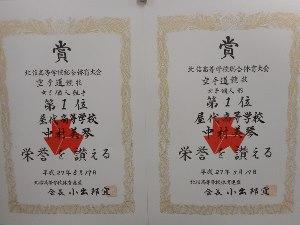 賞
北信高等学校総合体育大会
空手道競技
女子個人組手
第1位
屋代高等学校
中村美琴
栄誉を讃える
平成27年5月19日
北信高等学校体育連盟
会長 小出邦
賞
北信高等学校総合体育大会
空手道競技
女子個人形
第1位
屋代高等学校
中村美琴
栄誉を讃える
平成27年5月19日
北信高等学校体育連盟
会長 小出邦